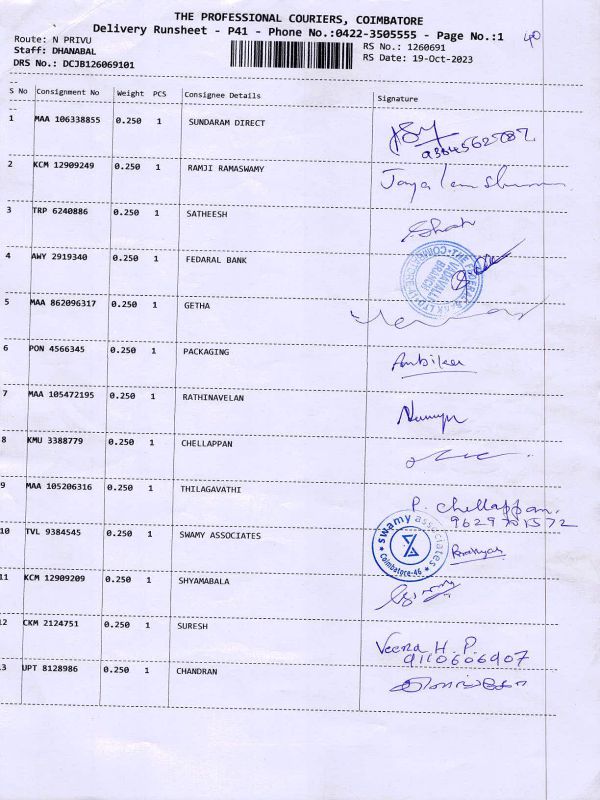 THE PROFESSIONAL COURIERS, COIMBATORE
Delivery Runsheet - P41 - Phone No.:0422-3505555 - Page No.:1
40
Route: N PRIVU
RS No.: 1260691
Staff: DHANABAL
RS Date: 19-Oct-2023
DRS No.: DCJB126069101
S No Consignment No Weight PCS Consignee Details Signature
1 MAA 106338855 0.250 1 SUNDARAM DIRECT
2 KCM 12909249 0.250 1 RAMJI RAMASWAMY
3 TRP 6240886 0.250 1 SATHEESH
4 AWY 2919340 0.250 1 FEDARAL BANK
5 MAA 862096317 0.250 1 GETHA
6 PON 4566345 0.250 1 PACKAGING Ambika
7 MAA 105472195 0.250 1 RATHINAVELAN
8 KMU 3388779 0.250 1 CHELLAPPAN
9 MAA 105206316 0.250 1 THILAGAVATHI P. Chellappan.
10 TVL 9384545 0.250 1 SWAMY ASSOCIATES swamy associates Coimbatore-46
11 KCM 12909209 0.250 1 SHYAMABALA
12 CKM 2124751 0.250 1 SURESH Veena H. P.
9110606907
13 UPT 8128986 0.250 1 CHANDRAN